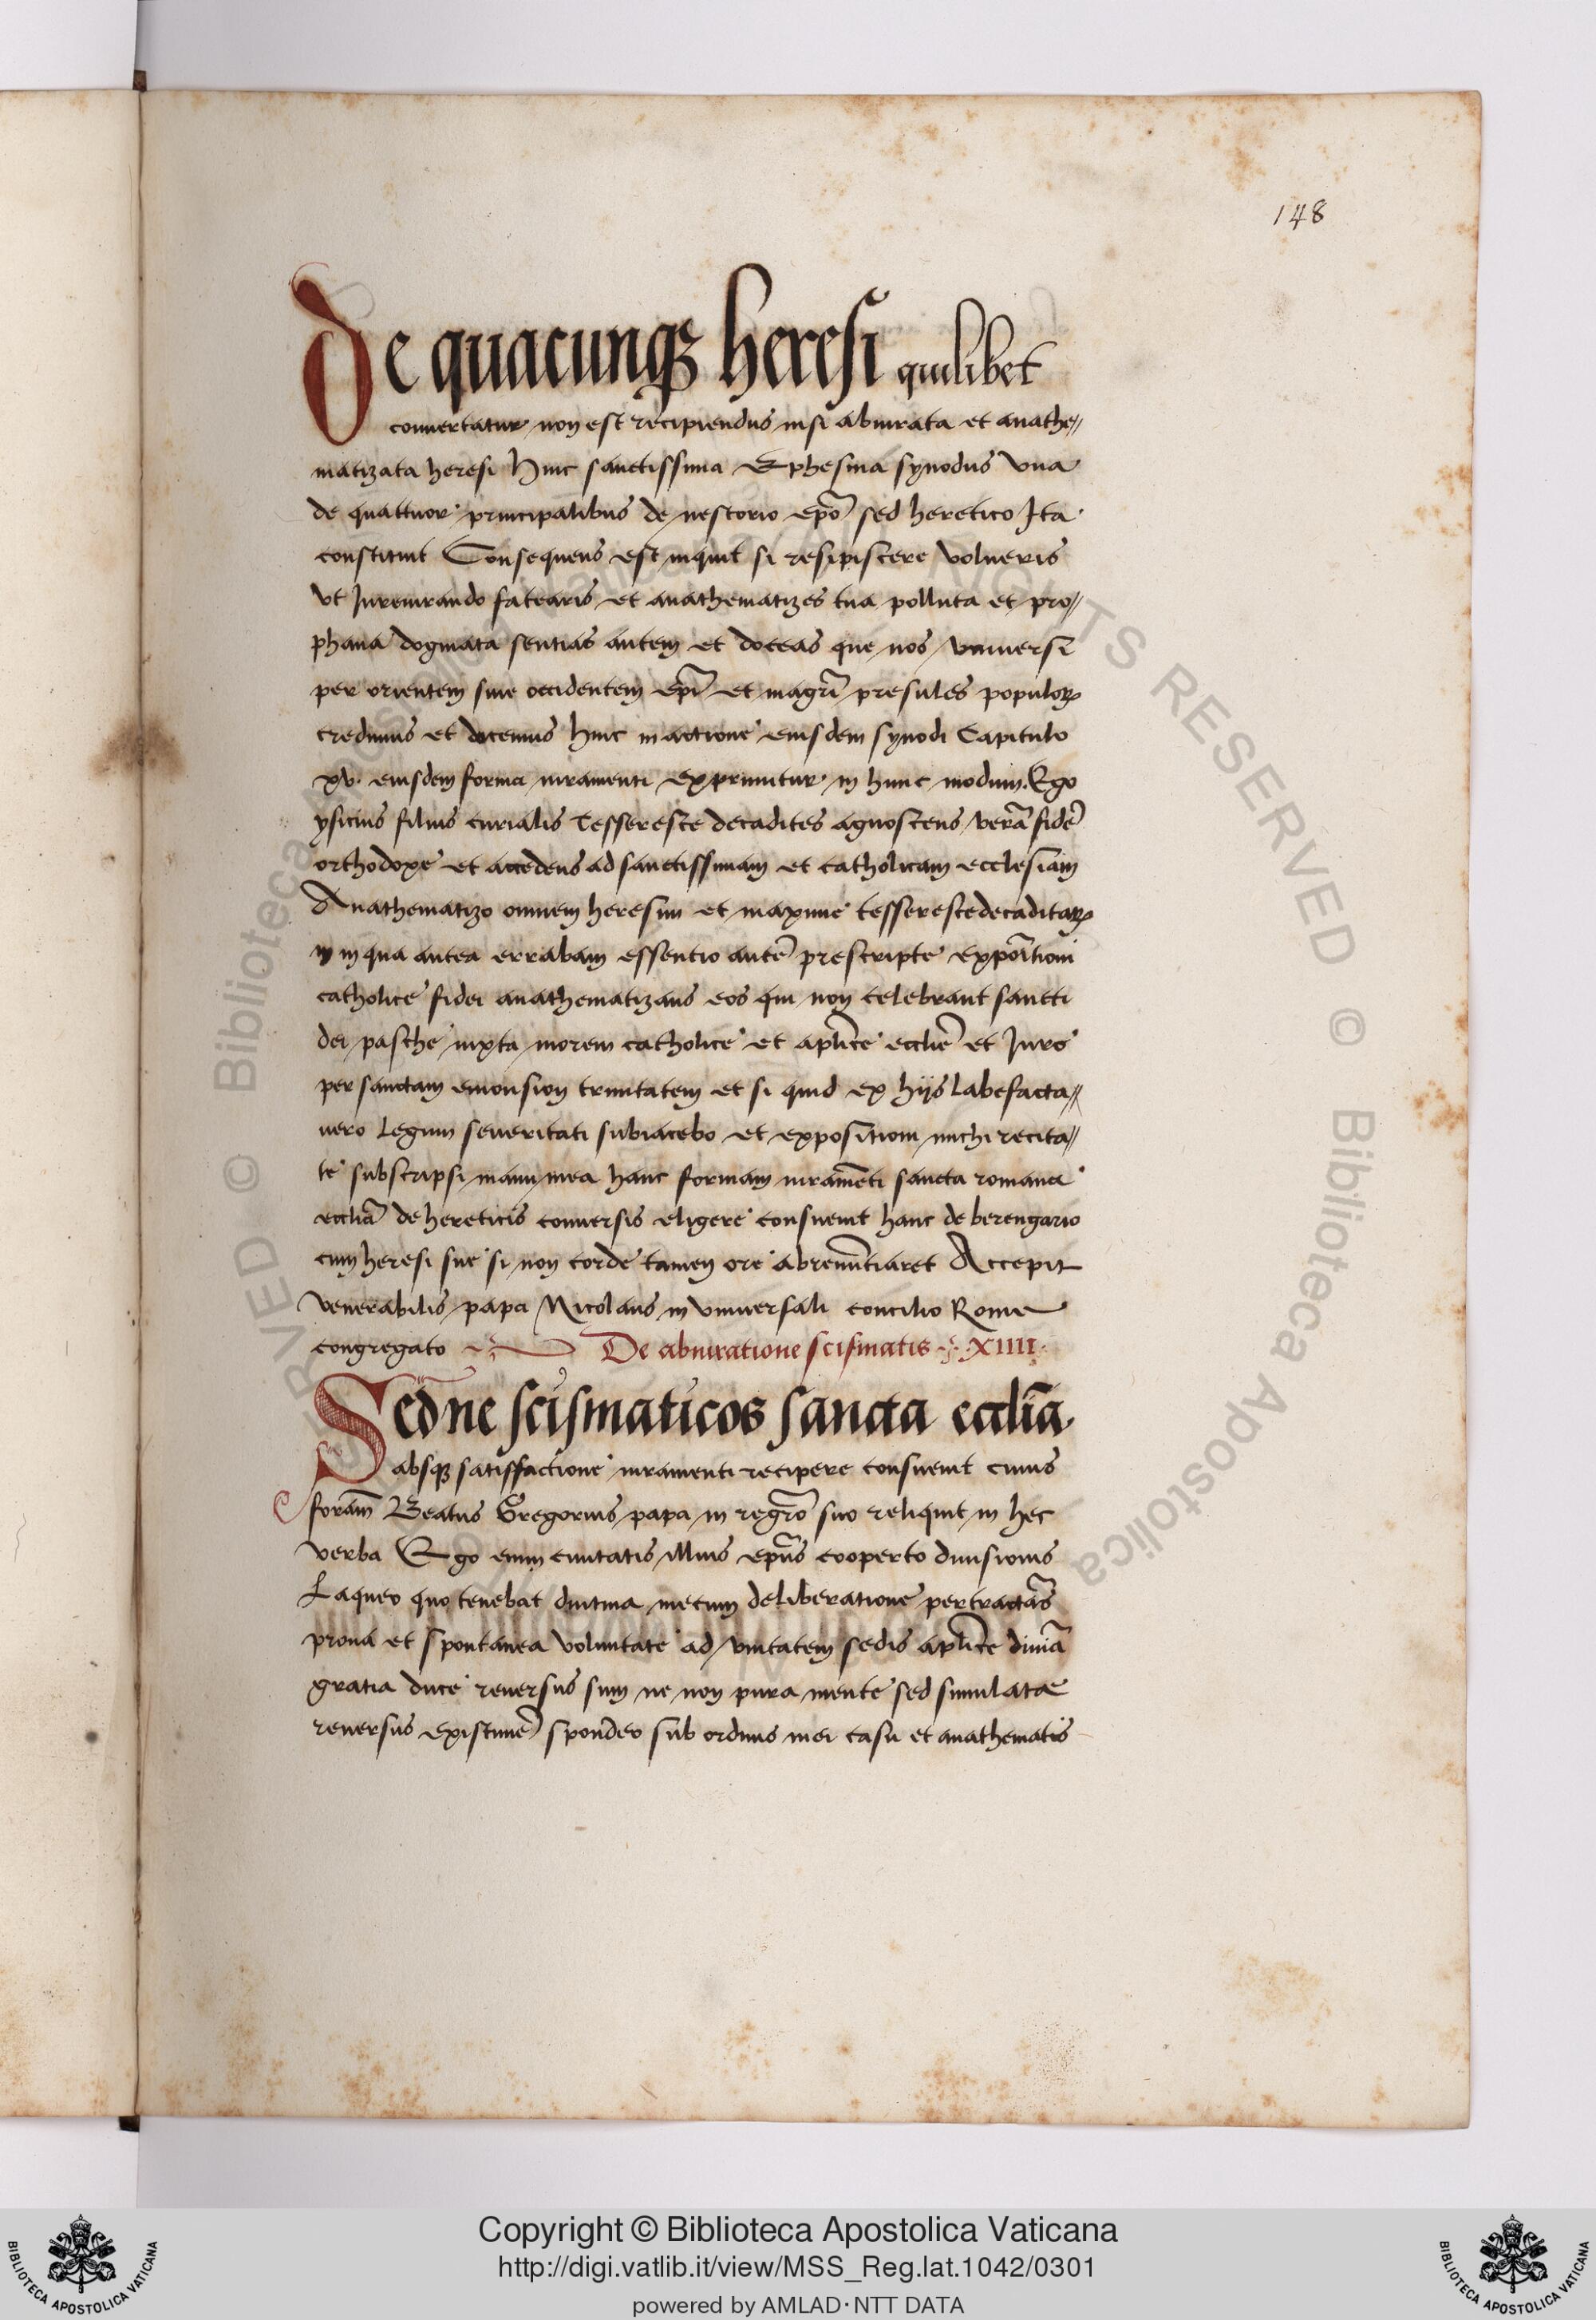 148
De quacunqꝫ heresi quilibet
conuertatur non est recipiendus nisi abiurata et anathe//
matizata heresi Hinc sanctissima Ephesina synodus vna
de quattuor principalibus de nestorio ep̄o sed heretico Ita
constituit Consequens est inquit si resipiscere volueris
vt Iureiurando fatearis et anathematizes tua polluta et pro//
phana dogmata sentias autem et doceas que nos vniuersi
per orientem siue occidentem ep̄i et magr̄i presules populoꝝ
credimus et docemus hinc in actione eiusdem synodi Capitulo
xv. eiusdem forma iuramenti exprimitur in hunc modum. Ego
ysicius filius curialis Tesseresce decadites agnoscens verā fidē
orthodoxe et accedens ad sanctissimam et catholicam ecclesiam
Anathematizo omnem heresim et maxime tesserescedecaditaꝝ
in qua antea errabam essentio autē prescripte expōitioni
catholice fidei anathematizans eos qui non celebrant sancti
dei pasche iuxta morem catholice et aplīce ecclīe et Iuro
per sanctam emonsion trinitatem et si quid ex hijs labefacta//
uero legum seueritati subiacebo et expositioni michi recita//
te subscripsi manu mea hanc formam iuramēti sancta romana
ecclīa de hereticis conuersis eligere consueuit hanc de berengario
cum heresi sue si non corde tamen ore abrenūtiaret Accepit
venerabilis papa Nicolaus in vniuersali concilio Rome
congregato De abiuratione scismatis XIIII
Sed ne scismaticos sancta ecclīa
absqꝫ satisfactione iuramenti recipere consueuit cuius
forām Beatus Gregorius papa in regr̄o suo reliquit in hec
verba Ego enim ciuitatis illius ep̄us cooperto diuisionis
Laqueo quo tenebat diutina mecum deliberatione pertractās
prona et spontanea voluntate ad vnitatem sedis aplīce diuīa
gratia duce reuersus sum ne non pura mente sed simulatae
reuersus existimē spondeo sub ordinis mei casu et anathematis
Copyright © Biblioteca Apostolica Vaticana
http://digi.vatlib.it/view/MSS_Reg.lat.1042/0301
powered by AMLAD·NTT DATA
BIBLIOTECA APOSTOLICA VATICANA
BIBLIOTECA APOSTOLICA VATICANA